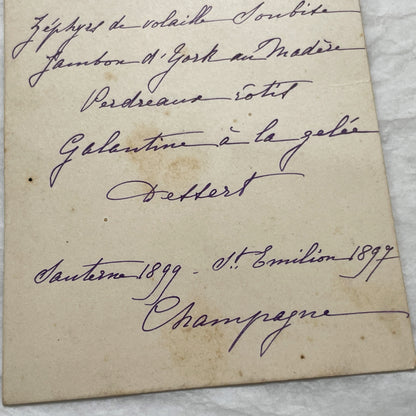 Zéphyrs de volaille Soubise
Jambon d'York au Madère
Perdreaux rôtis
Galantine à la gelée
Dessert
Sauterne 1899 - St. Emilion 1897
Champagne